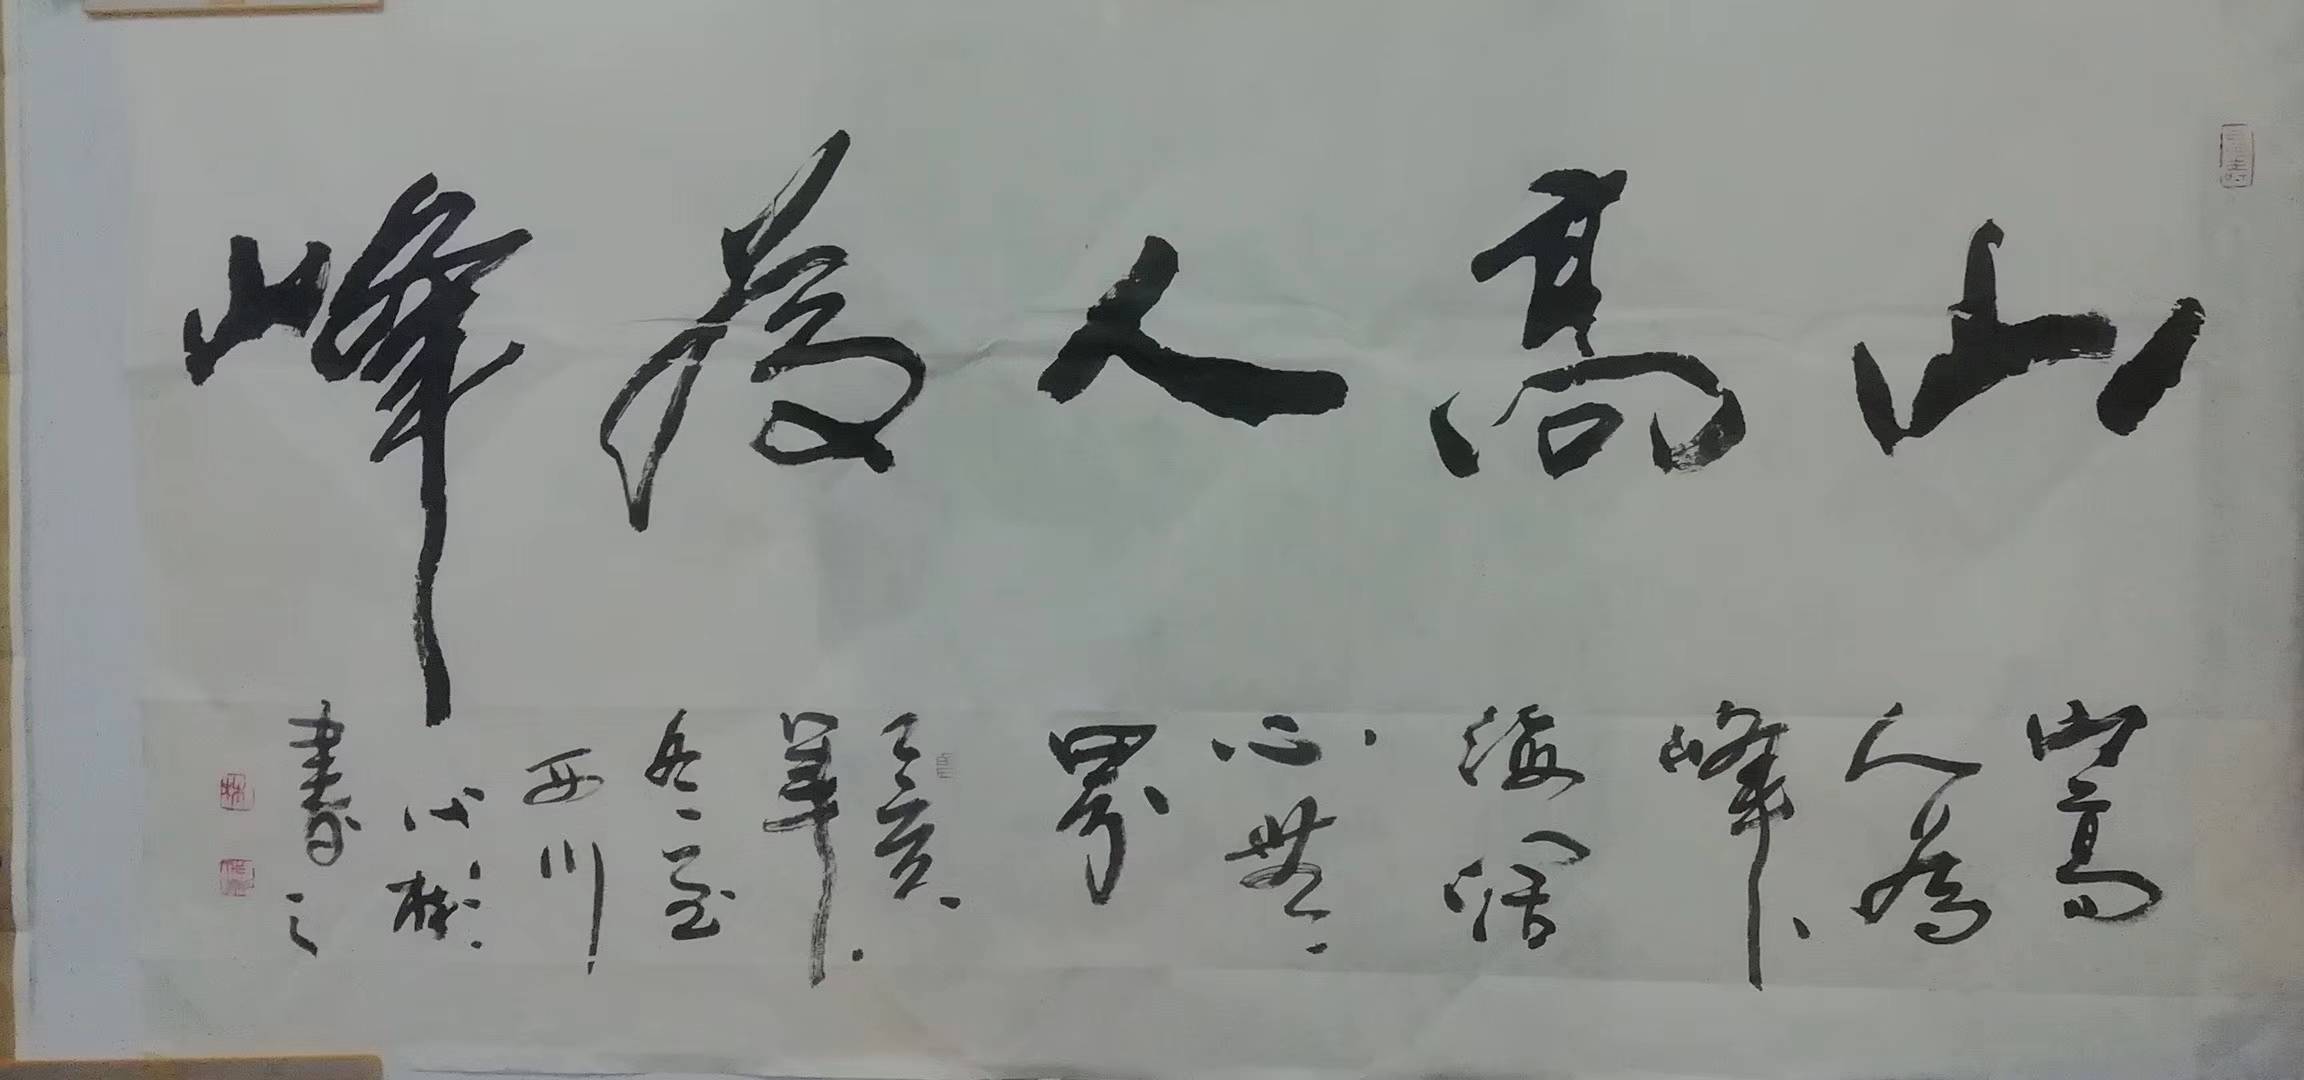 山高人为峰
山高
人为
峰
海阔
心无
界
己亥
年
冬至
西川
心樵
书之